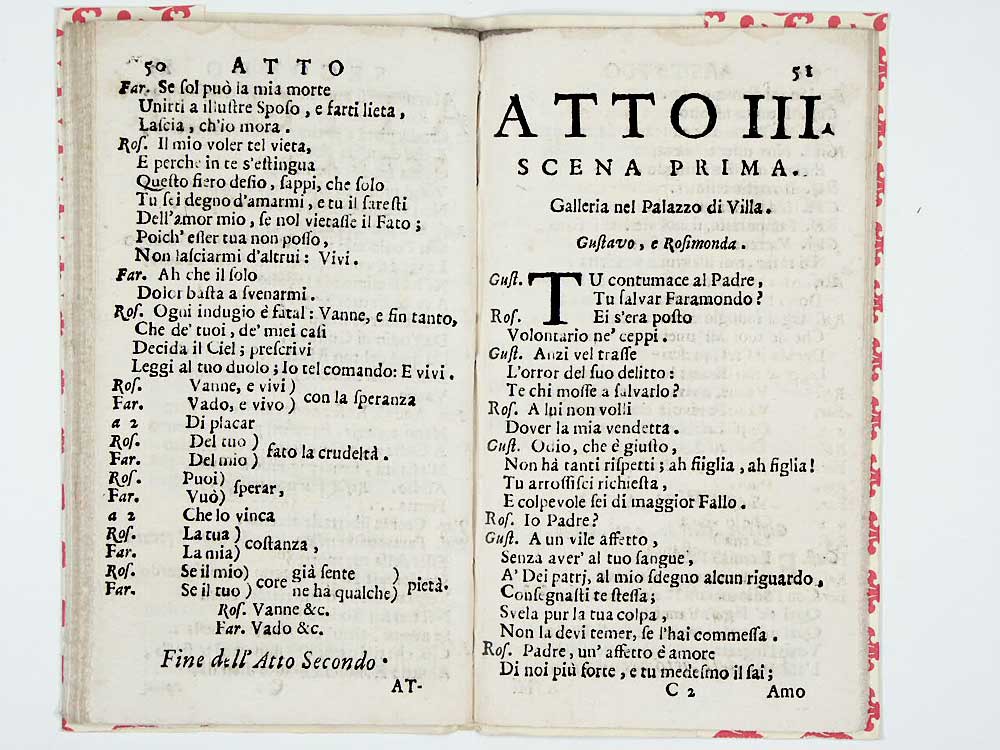 50 ATTO
Far. Se ſol può la mia morte
Unirti a illuſtre Spoſo, e farti lieta,
Laſcia, ch'io mora.
Roſ. Il mio voler tel vieta,
E perche in te s'eſtingua
Queſto fiero deſio, ſappi, che ſolo
Tu ſei degno d'amarmi, e tu il fareſti
Dell'amor mio, ſe nol vietaſſe il Fato;
Poich' eſſer tua non poſſo,
Non laſciarmi d'altrui: Vivi.
Far. Ah che il ſolo
Dolor baſta a ſvenarmi.
Roſ. Ogni indugio è fatal: Vanne, e fin tanto,
Che de' tuoi, de' miei caſi
Decida il Ciel; preſcrivi
Leggi al tuo duolo; Io tel comando: E vivi.
Roſ. Vanne, e vivi)
Far. Vado, e vivo) con la ſperanza
a 2 Di placar
Roſ. Del tuo)
Far. Del mio) fato la crudeltà.
Roſ. Puoi)
Far. Vuò) ſperar,
a 2 Che lo vinca
Roſ. La tua)
Far. La mia) coſtanza,
Roſ. Se il mio) core già ſente )
Far. Se il tuo) ne ha qualche) pietà.
Roſ. Vanne &c.
Far. Vado &c.
Fine dell'Atto Secondo.
AT-
51
ATTO III.
SCENA PRIMA.
Galleria nel Palazzo di Villa.
Guſtavo, e Roſimonda.
Guſt. TU contumace al Padre,
Tu ſalvar Faramondo?
Roſ. Ei s'era poſto
Volontario ne' ceppi.
Guſt. Anzi vel traſſe
L'orror del ſuo delitto:
Te chi moſſe a ſalvarlo?
Roſ. A lui non volli
Dover la mia vendetta.
Guſt. Odio, che è giuſto,
Non hà tanti riſpetti; ah fiiglia, ah figlia!
Tu arroſſiſci richieſta,
E colpevole ſei di maggior Fallo.
Roſ. Io Padre?
Guſt. A un vile affetto,
Senza aver' al tuo ſangue,
A' Dei patrj, al mio ſdegno alcun riguardo,
Conſegnaſti te ſteſſa;
Svela pur la tua colpa,
Non la devi temer, ſe l'hai commeſſa.
Roſ. Padre, un' affetto è amore
Di noi più forte, e tu medeſmo il ſai;
C 2 Amo